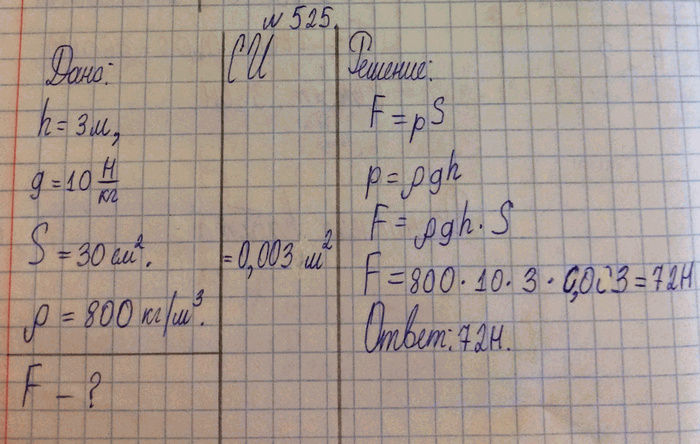 № 525.
Дано:
h = 3м,
g = 10 Н/кг
S = 30 см².
ρ = 800 кг/м³.
F - ?
СИ
= 0,003 м²
Решение:
F = pS
p = ρgh
F = ρgh · S
F = 800 · 10 · 3 · 0,003 = 72Н
Ответ: 72Н.